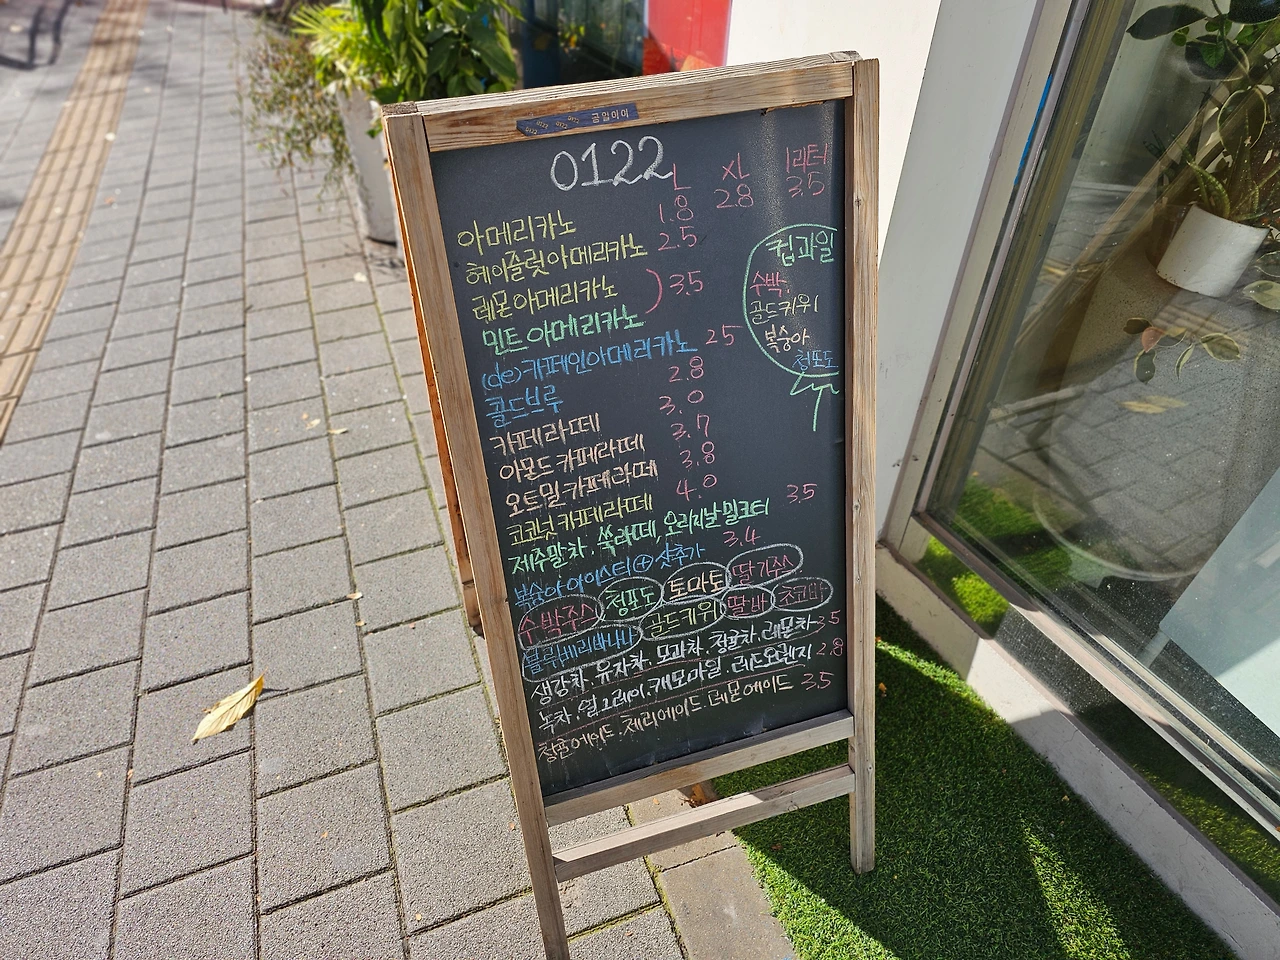 0122 0122 0122 금일이이
0122
L XL 1리터
아메리카노 1.8 2.8 3.5
헤이즐럿아메리카노 2.5
레몬아메리카노
민트아메리카노 3.5
(de)카페인아메리카노 2.5
콜드브루 2.8
카페라떼 3.0
아몬드카페라떼 3.7
오트밀카페라떼 3.8
코코넛카페라떼 4.0
제주말차. 쑥라떼. 오리지날밀크티 3.5
복숭아아이스티⊕샷추가 3.4
수박주스 청포도 토마토 딸기주스
블루베리바나나 골드키위 딸바 초코바
생강차. 유자차. 모과차. 청귤차. 레몬차 3.5
녹차. 얼그레이. 캐모마일. 레드오렌지 2.8
청귤에이드. 체리에이드. 레몬에이드 3.5
컵과일
수박.
골드키위
복숭아
청포도